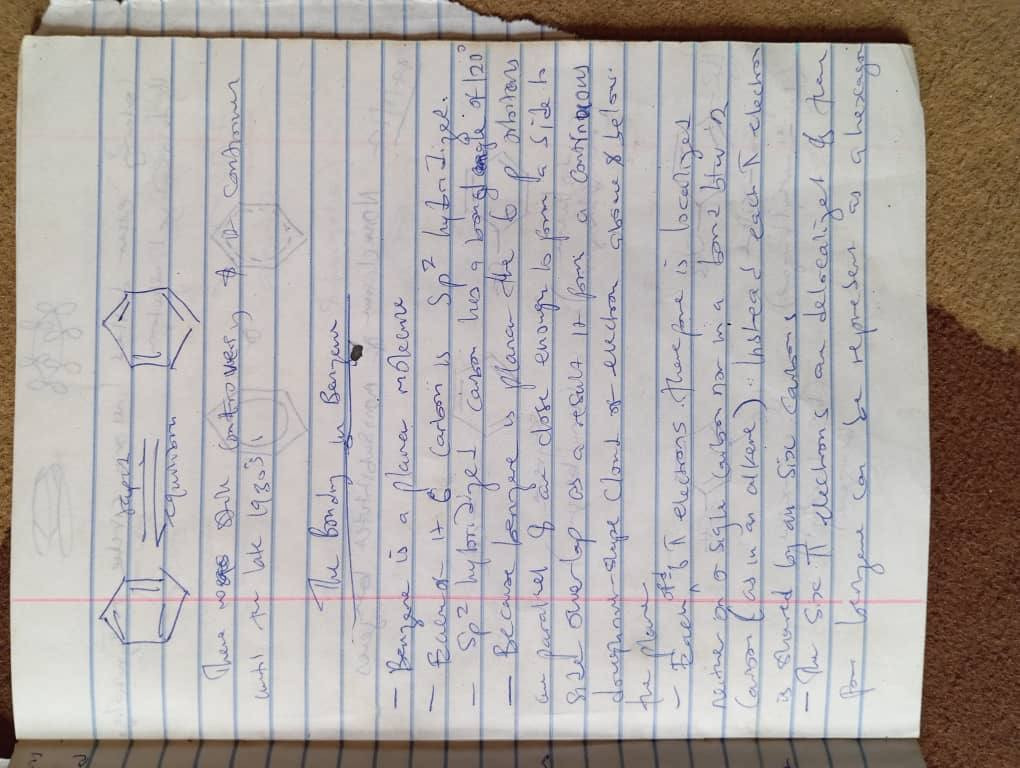 rapid
equilibrium
There was still controversy &
until the late 1930s
The Bonding in Benzene
- Benzene is a planar molecule
- Each of it 6 Carbon is Sp2 hybridized.
- Sp2 hybridized Carbon has a bond angle of 120°
- Because benzene is planar the 6 p orbitals
are parallel & are close enough to form a side to
side overlap as a result it form a continuous
doughnut-shape cloud of electron above & below
the plane
- Each of the 6 π electrons therefore is localized
neither on a single carbon nor in a bond btw 2
Carbon (as in an alkene): instead each π electron
is shared by all six Carbons
- The six π electrons are delocalized &
benzene can be represent as a hexagon